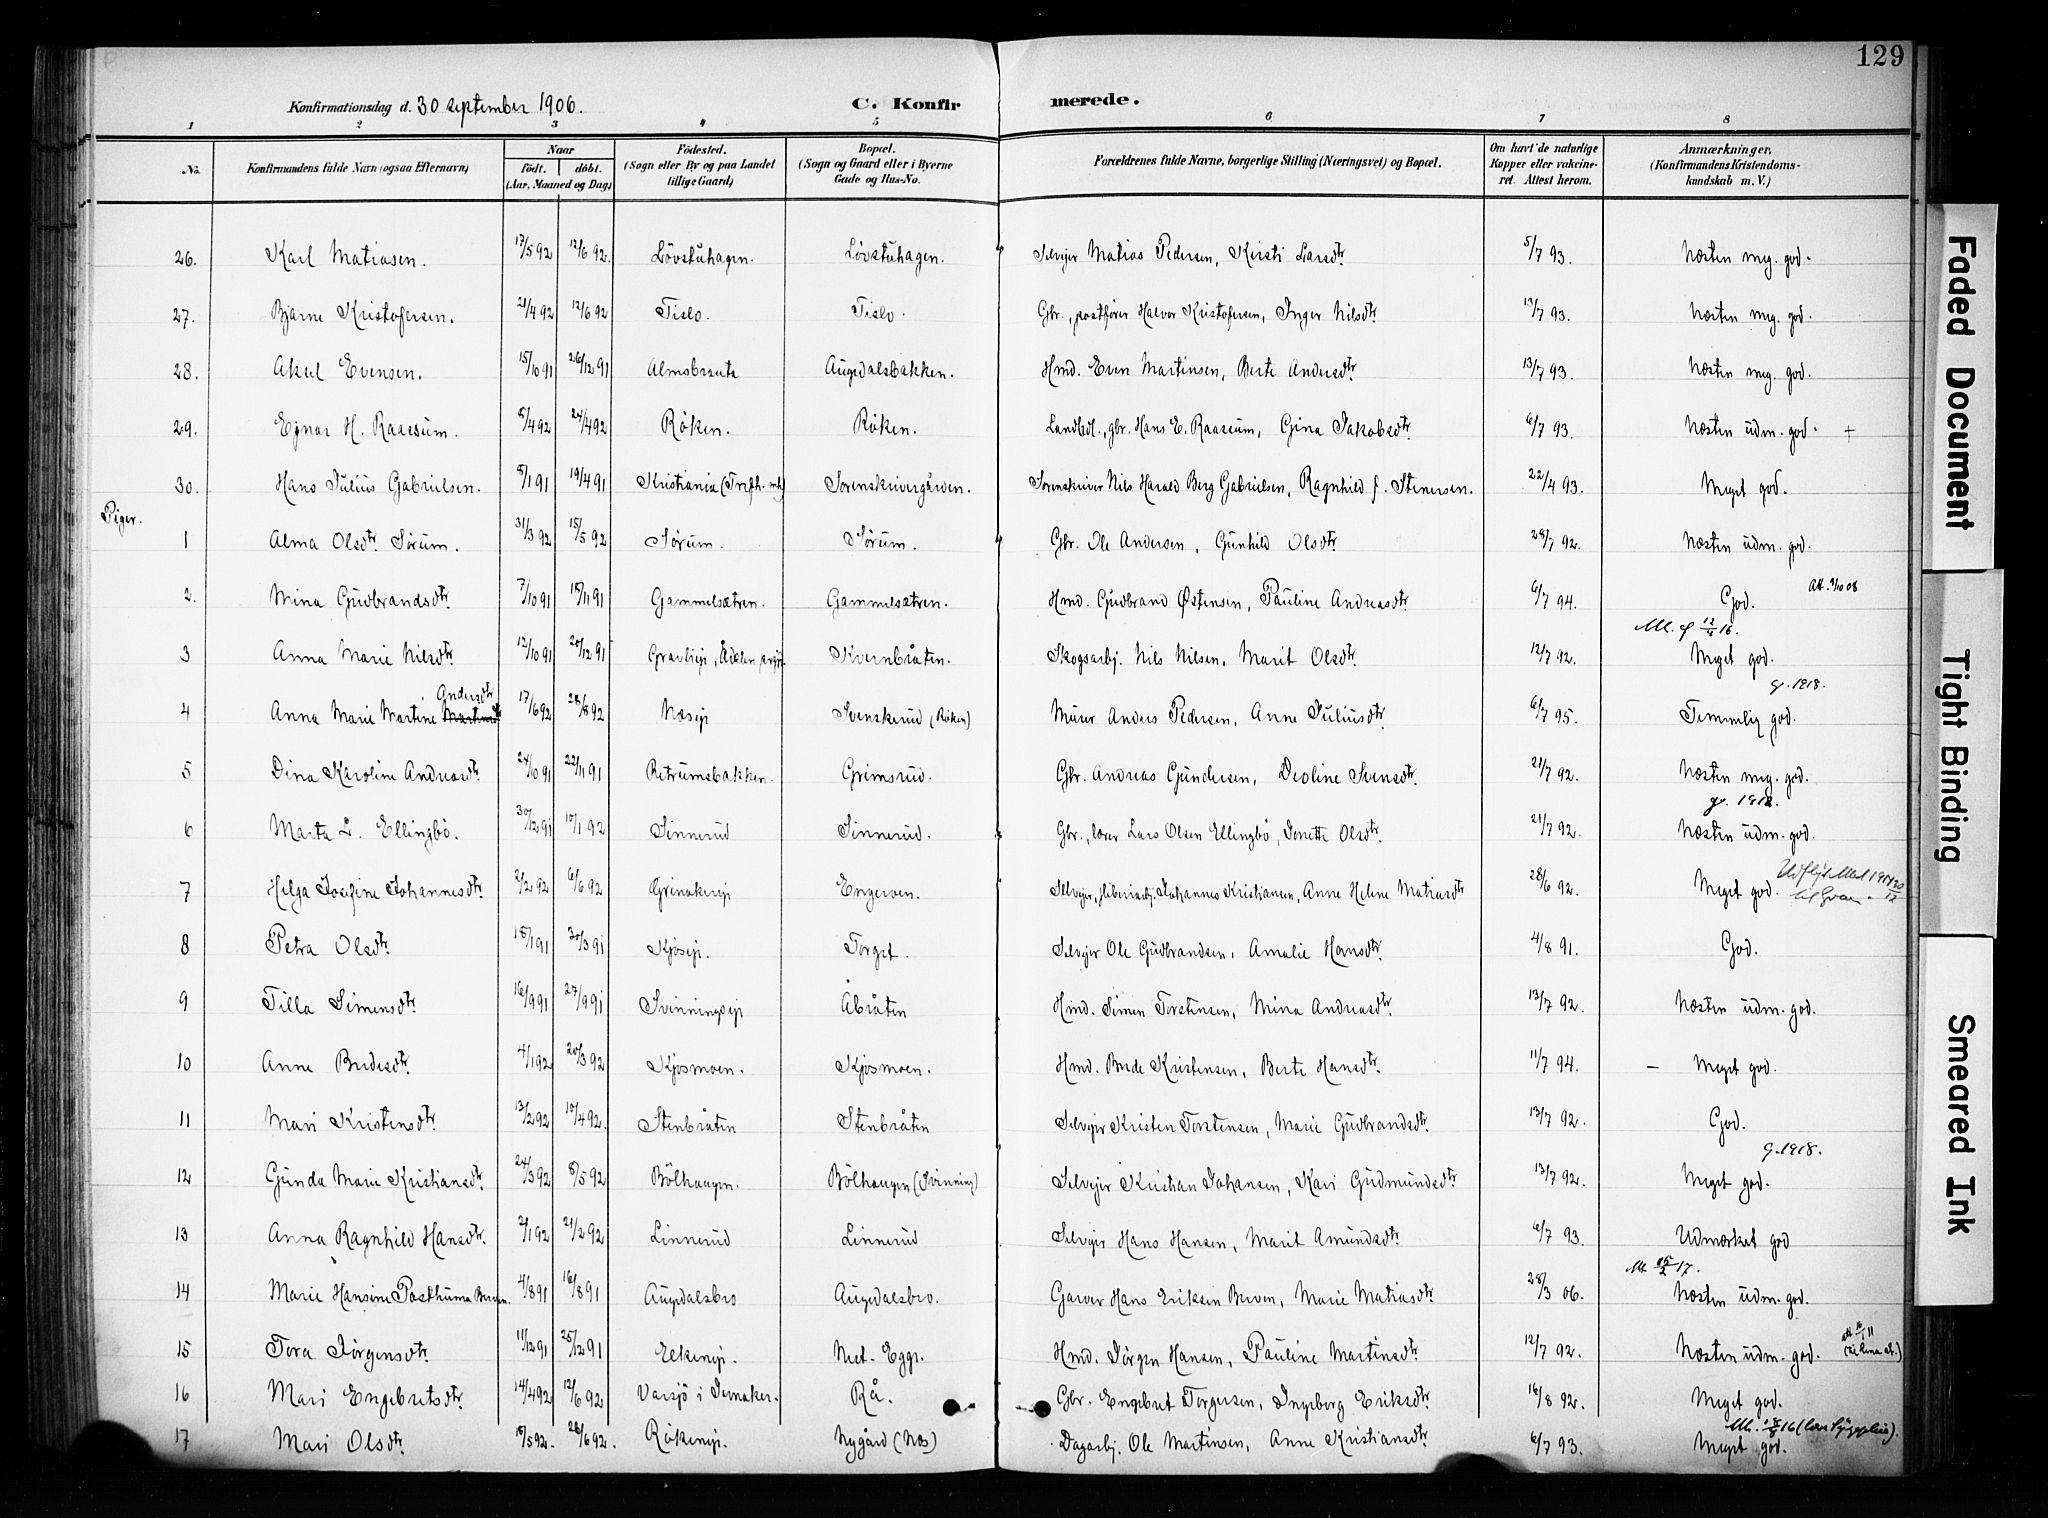 129
Konfirmationsdag d. 30 september 1906. C. Konfirmerede.
1 2 3 4 5 6 7 8
No. Konfirmandens fulde Navn (ogsaa Efternavn) Naar født. døbt. (Aar, Maaned og Dag) Födested. (Sogn eller By og paa Landet tillige Gaard) Bopæl. (Sogn og Gaard eller i Byerne Gade og Hus-No. Forældrenes fulde Navne, borgerlige Stilling (Næringsvei) og Bopæl. Om havt de naturlige Kopper eller vakcineret. Attest herom. Anmærkninger, (Konfirmandens Kristendomskundskab m. V.)
26. Karl Matiasen. 17/5 92 12/6 92. Lövstuhagen. Lövstuhagen. Selvejer Matias Pedersen, Kirsti Larsdtr 5/7 93. Næsten meg. god.
27. Bjarne Kristofersen. 21/4 92 12/6 92 Tislo. Tislo. Gbr., postfører Halvor Kristofersen, Inger Nilsdtr 13/7 93. Næsten meg. god.
28. Aksel Evensen. 15/10 91 26/12 91 Almsbrauta Augedalsbakken. Hmd. Even Martinsen, Berte Andersdtr. 13/7 93. Næsten meg. god.
29. Ejnar H. Raassum. 8/4 92 24/4 92 Röken. Röken. Landhdl., gbr. Hans E. Raassum, Gina Jakobsdtr. 6/7 93. Næsten udm. god. +
30. Hans Julius Gabrielsen. 8/1 91 19/4 91 Kristiania Sorenskrivergården. Sorenskriver Nils Harald Berg Gabrielsen, Ragnhild f. Stenersen. 22/4 93. Meget god.
Piger.
1 Alma Olsdtr. Sørum. 31/3 92 15/5 92 Sørum. Sørum. Gbr. Ole Andersen, Gunhild Olsdtr 28/7 92. Næsten udm. god.
2. Mina Gudbrandsdtr. 7/10 91 15/11 91 Gammelsætren. Gammelsætren. Hmd. Gudbrand Østensen, Pauline Andreasdtr 6/7 94. God. Att. 9/10 08
3 Anna Marie Nilsdtr. 12/10 91 20/12 91 Kvernbråten. Skogsarbj. Nils Nilsen, Marit Olsdtr. 12/7 92. Meget god.
4 Anna Marie Martine Andersdtr 17/6 92 28/8 92 Næsejet Svenskerud (Röken) Murer Anders Pedersen, Anne Juliusdtr. 6/7 95. Temmelig god. g. 1918.
5 Dina Karoline Andreasdtr. 24/10 91 22/11 91 Retrumsbakken. Grimsrud. Gbr. Andreas Gundersen, Deoline Svensdtr. 21/7 92. Næsten meg. god.
6 Marta L. Ellingbö. 30/12 91 10/1 92 Sinnerud Sinnerud. Gbr., lærer Lars Olsen Ellingbö, Jonette Olsdtr. 21/7 92. gv. 1918. Næsten udm. god.
7 Helga Josefine Johannesdtr 2/2 92 6/6 92 Grinakerejet Engerven. Selvejer, fliberiarbj. Johannes Kristiansen, Anne Helene Matiasdtr 28/6 92. Meget god.
8 Petra Olsdtr. 18/1 91 30/3 91 Kjösejet. Torget. Selvejer Ole Gudbrandsen, Amalie Hansdtr. 4/8 91. God.
9 Tilla Simensdtr. 16/9 91 27/9 91 Svinningsejet Åbråten Hmd. Simen Torstensen, Mina Andreasdtr. 13/7 92. Næsten udm. god.
10 Anne Bredesdtr. 4/1 92 20/3 92 Kjosmoen. Kjosmoen. Hmd. Brede Kristensen, Berte Hansdtr. 11/7 94. — Meget god.
11 Mari Kristensdtr 13/2 92 10/4 92. Stenbråten Stenbråten Selvejer Kristen Torstensen, Marie Gudbrandsdtr. 13/7 92. God.
12 Gunda Marie Kristiansdtr. 24/3 92 8/5 92 Bölhaugen. Bölhaugen (Svinning) Selvejer Kristian Johansen, Kari Gudmundsdtr 13/7 92. g. 1918. Meget god.
13 Anna Ragnhild Hansdtr. 2/1 92 21/2 92 Linnerud Linnerud Selvejer Hans Hansen, Marit Amundsdtr 6/7 93. Udmærket god
14 Marie Hansine Posthuma Berven. 4/8 91 16/8 91 Augedalsbro Augedalsbro. Garver Hans Eriksen Berven, Marie Matiasdtr. 28/3 06. Næsten udm. god.
15 Tora Jörgensdtr. 11/12 91 25/12 91 Elkenejet. Ned. Egge. Hmd. Jörgen Hansen, Pauline Martinsdtr. 12/7 92. Næsten udm. god.
16 Mari Engebretsdtr. 14/4 92 12/6 92 Varsjö i Jevnaker. Rå. Gbr. Engebret Torgersen, Ingeborg Eriksdtr. 16/8 92. Meget god.
17 Mari Olsdtr. 15/5 92. 26/6 92. Rökenejet. Nygård (Næs) Dagarbj. Ole Martinsen, Anne Kristiansdtr. 6/7 93. Meget god.
Faded Document
Tight Binding
Smeared Ink